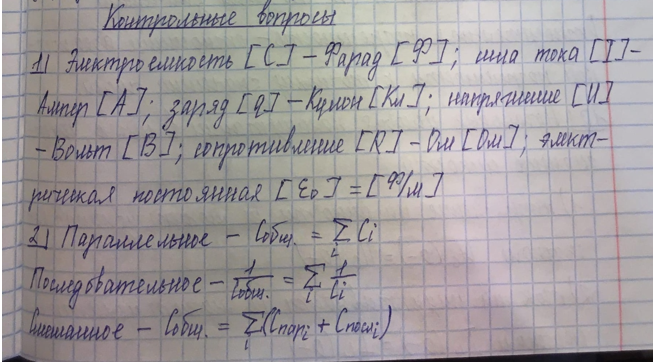 Контрольные вопросы
1) Электроемкость [C] – Фарад [Ф]; сила тока [I] –
Ампер [A]; заряд [q] – Кулон [Кл]; напряжение [U]
– Вольт [В]; сопротивление [R] – Ом [Ом]; элект-
рическая постоянная [ε₀] = [Ф/м]
2) Параллельное – Cобщ. = ∑ᵢ Cᵢ
Последовательное – 1/Cобщ. = ∑ᵢ 1/Cᵢ
Смешанное – Cобщ. = ∑ᵢ (Cпарᵢ + Cпослᵢ)